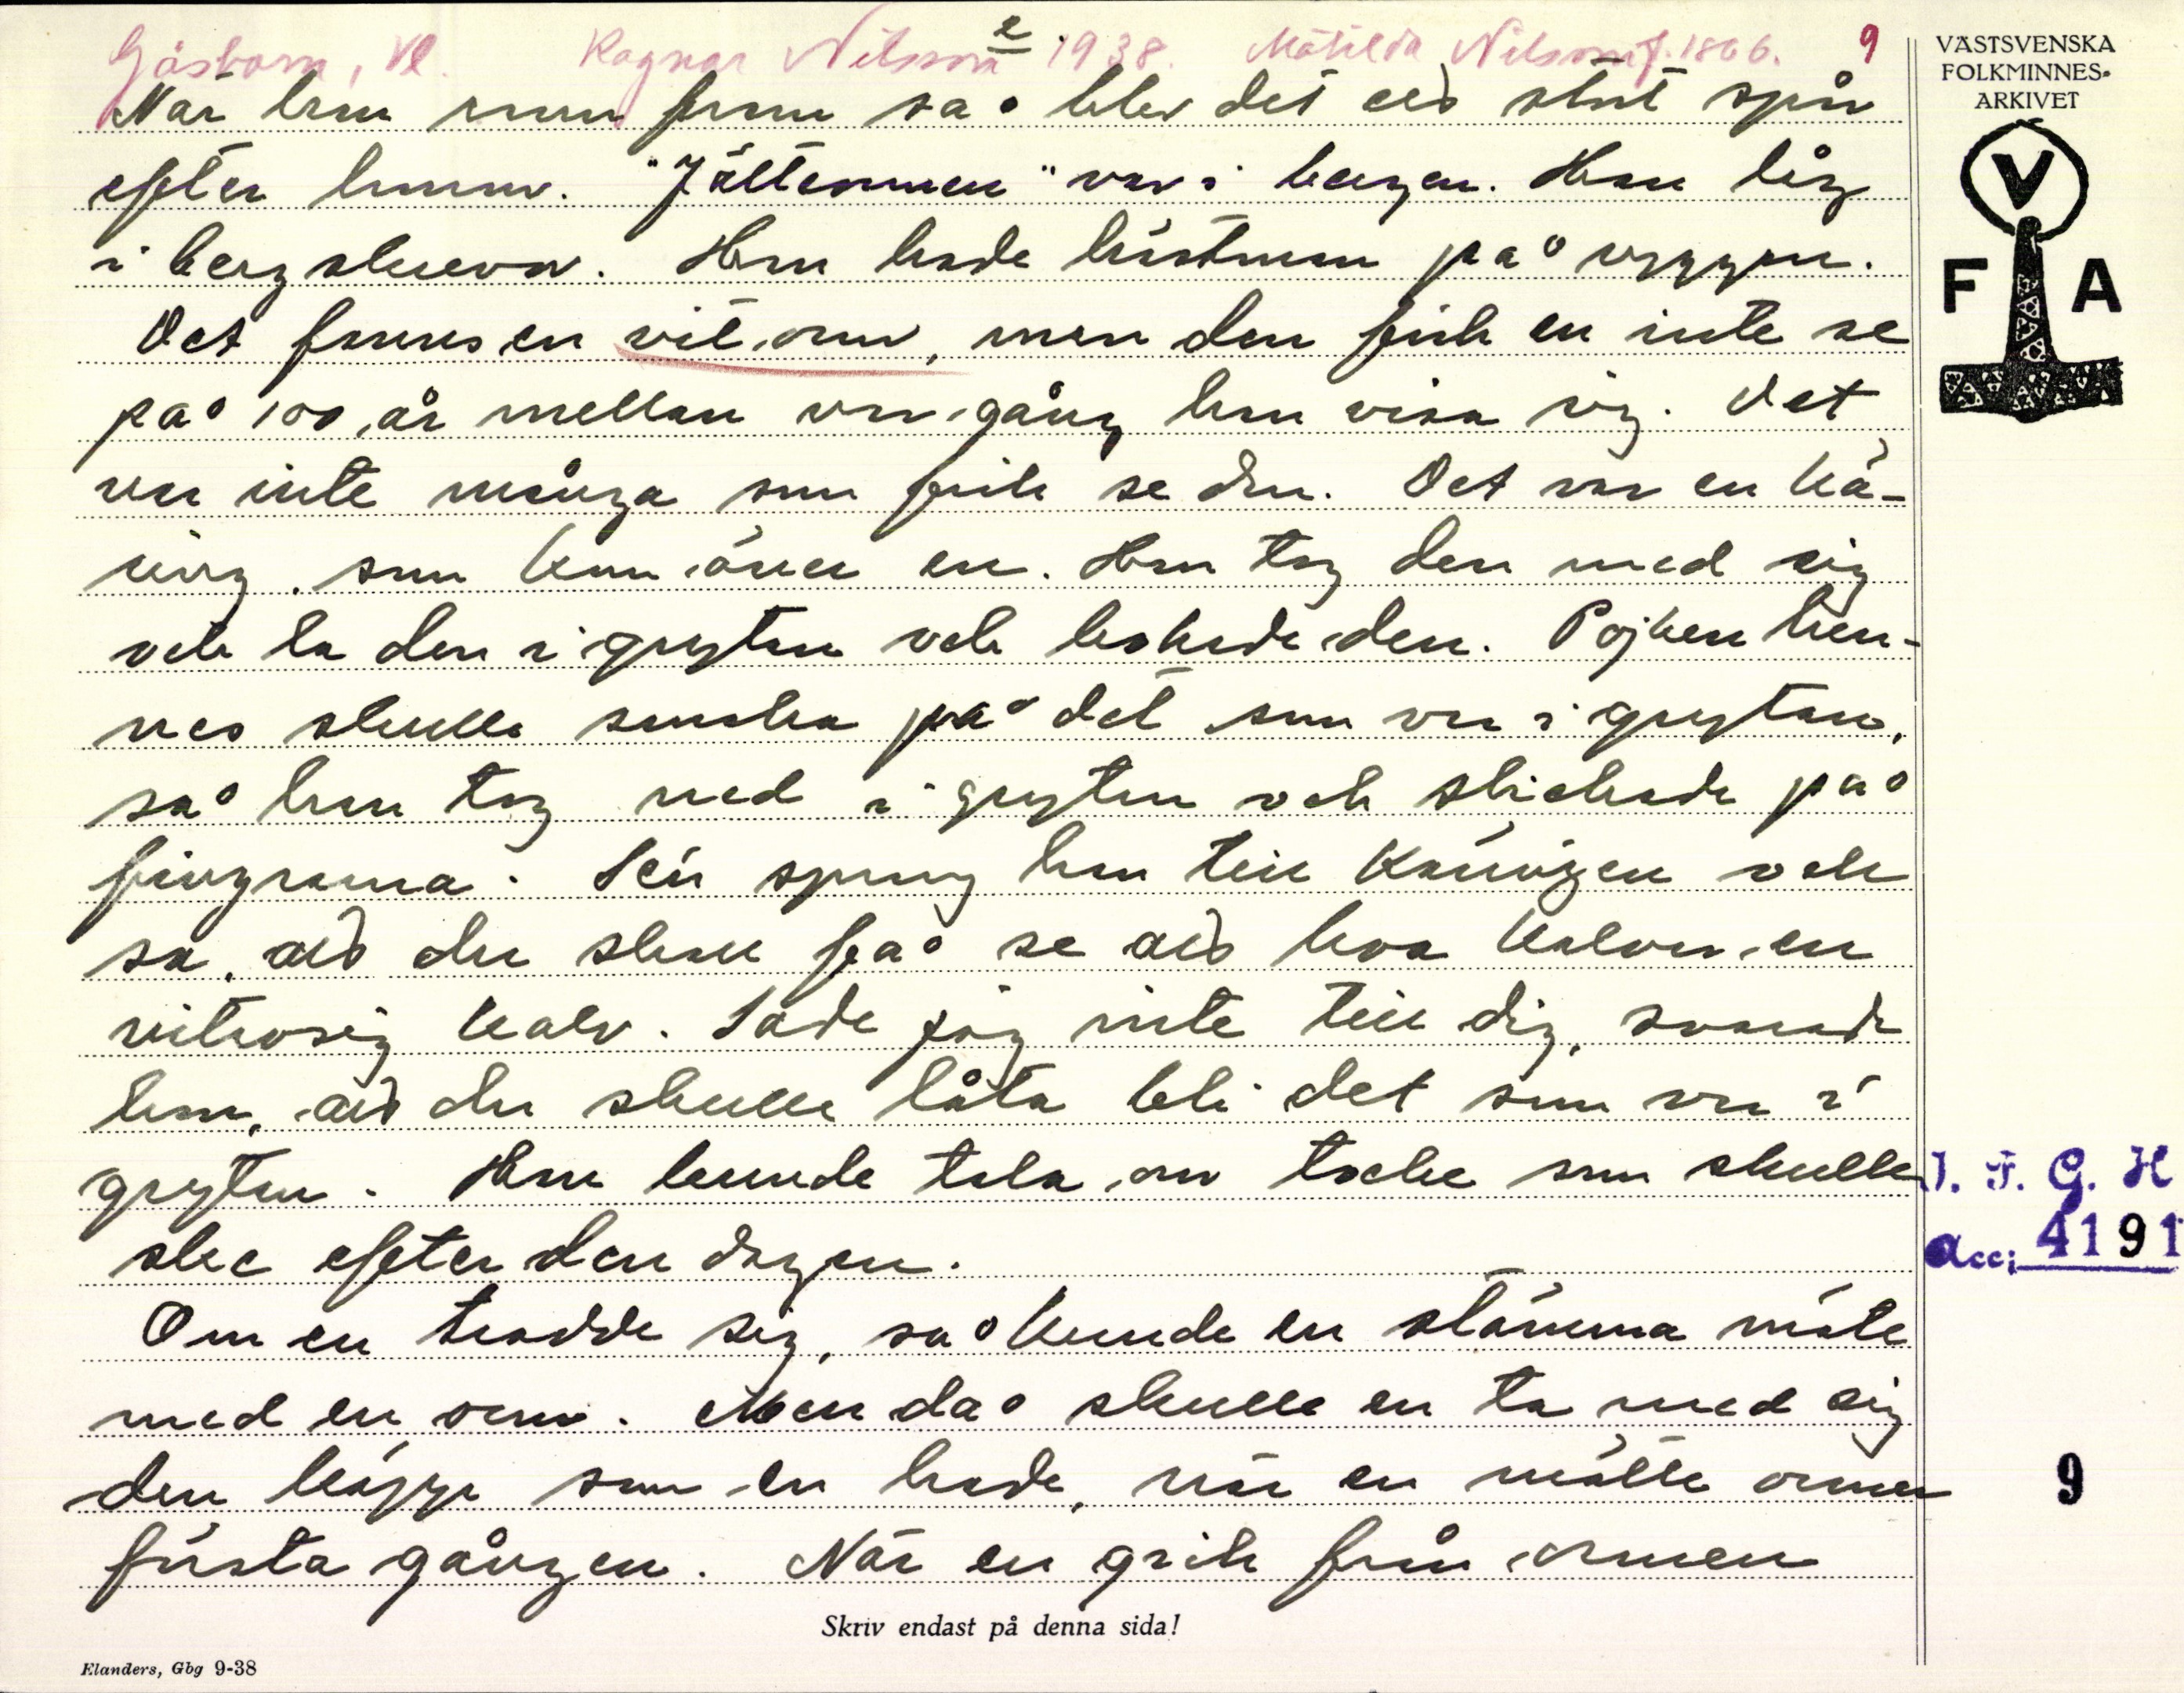 Gåsborn, Vl. Ragnar Nilsson 1938. Matilda Nilsson f. 1866. 9
2
När han rann fram så blev det ett stort spår
efter honom. "Jätteormen" var i bergen. Han låg
i bergskrevor. Han hade hästman på ryggen.
Det fanns en vit orm, men den fick en inte se
på 100 år mellan var gång han visa sig. Det
var inte många som fick se den. Det var en kä-
ring som kom över en. Hon tog den med sig
och la den i grytan och kokade den. Pojken hen-
nes skulle smaka på det som var i grytan,
så han tog ned i grytan och slickade på
fingrarna. Sen sprang han till käringen och
sa, att du skall få se att kon kalvar en
vitrosig kalv. Sade jag inte till dig, svarade
hon, att du skulle låta bli det som var i
grytan. Han kunde tala om tocke som skulle
ske efter den dagen.
Om en trodde sig, så kunde en stämma möte
med en orm. Men då skulle en ta med sig
den käpp som en hade, när en mötte ormen
första gången. När en gick från ormen
Skriv endast på denna sida!
Elanders, Gbg 9-38
VÄSTSVENSKA
FOLKMINNES-
ARKIVET
V
F A
I. F. G. H
Acc: 4191
9